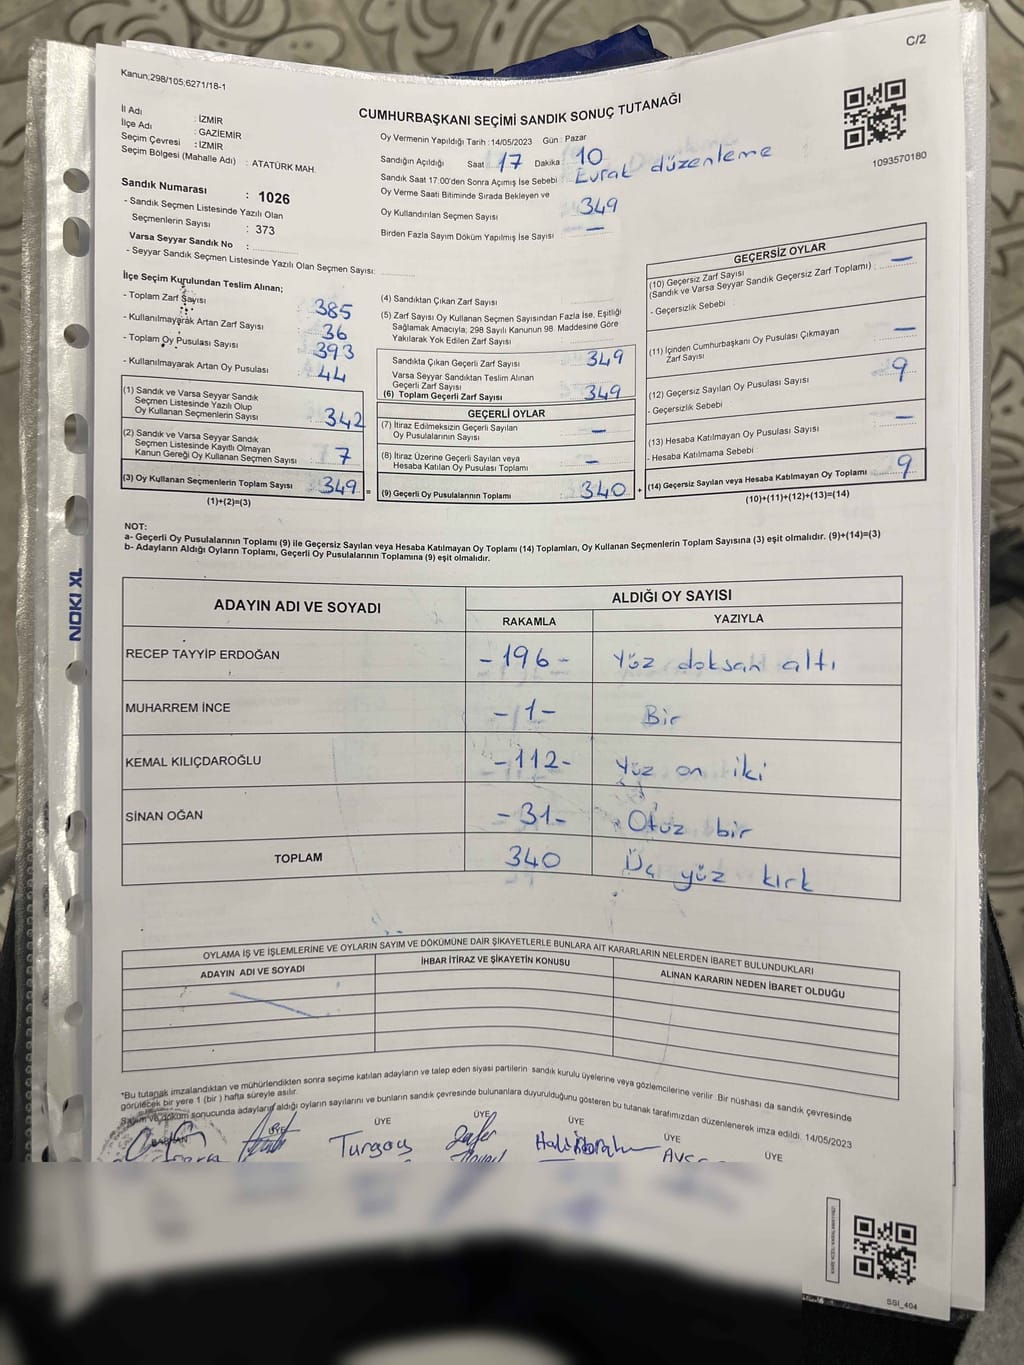 C/2
Kanun;298/105,6271/18-1
CUMHURBAŞKANI SEÇİMİ SANDIK SONUÇ TUTANAĞI
1093570180
İl Adı : İZMİR
İlçe Adı : GAZİEMİR
Seçim Çevresi : İZMİR
Seçim Bölgesi (Mahalle Adı) : ATATÜRK MAH.
Oy Vermenin Yapıldığı Tarih :14/05/2023 Gün : Pazar
Sandığın Açıldığı Saat 17 Dakika 10
Sandık Saat 17:00'den Sonra Açımış İse Sebebi : Evrak düzenleme
Oy Verme Saati Bitiminde Sırada Bekleyen ve
Oy Kullandırılan Seçmen Sayısı 349
Birden Fazla Sayım Döküm Yapılmış İse Sayısı —
Sandık Numarası : 1026
- Sandık Seçmen Listesinde Yazılı Olan
Seçmenlerin Sayısı : 373
Varsa Seyyar Sandık No :
- Seyyar Sandık Seçmen Listesinde Yazılı Olan Seçmen Sayısı:
İlçe Seçim Kurulundan Teslim Alınan;
- Toplam Zarf Sayısı 385
- Kullanılmayarak Artan Zarf Sayısı 36
- Toplam Oy Pusulası Sayısı 393
- Kullanılmayarak Artan Oy Pusulası 44
(1) Sandık ve Varsa Seyyar Sandık
Seçmen Listesinde Yazılı Olup
Oy Kullanan Seçmenlerin Sayısı 342
(2) Sandık ve Varsa Seyyar Sandık
Seçmen Listesinde Kayıtlı Olmayan
Kanun Gereği Oy Kullanan Seçmen Sayısı 7
(3) Oy Kullanan Seçmenlerin Toplam Sayısı 349 =
(1)+(2)=(3)
(4) Sandıktan Çıkan Zarf Sayısı
(5) Zarf Sayısı Oy Kullanan Seçmen Sayısından Fazla İse, Eşitliği
Sağlamak Amacıyla; 298 Sayılı Kanunun 98. Maddesine Göre
Yakılarak Yok Edilen Zarf Sayısı
Sandıkta Çıkan Geçerli Zarf Sayısı 349
Varsa Seyyar Sandıktan Teslim Alınan
Geçerli Zarf Sayısı
(6) Toplam Geçerli Zarf Sayısı 349
GEÇERLİ OYLAR
(7) İtiraz Edilmeksizin Geçerli Sayılan
Oy Pusulalarının Sayısı —
(8) İtiraz Üzerine Geçerli Sayılan veya
Hesaba Katılan Oy Pusulası Toplamı —
(9) Geçerli Oy Pusulalarının Toplamı 340 +
GEÇERSİZ OYLAR
(10) Geçersiz Zarf Sayısı
(Sandık ve Varsa Seyyar Sandık Geçersiz Zarf Toplamı) : —
- Geçersizlik Sebebi :
(11) İçinden Cumhurbaşkanı Oy Pusulası Çıkmayan
Zarf Sayısı —
(12) Geçersiz Sayılan Oy Pusulası Sayısı 9
- Geçersizlik Sebebi :
(13) Hesaba Katılmayan Oy Pusulası Sayısı —
- Hesaba Katılmama Sebebi :
(14) Geçersiz Sayılan veya Hesaba Katılmayan Oy Toplamı 9
(10)+(11)+(12)+(13)=(14)
NOT:
a- Geçerli Oy Pusulalarının Toplamı (9) ile Geçersiz Sayılan veya Hesaba Katılmayan Oy Toplamı (14) Toplamları, Oy Kullanan Seçmenlerin Toplam Sayısına (3) eşit olmalıdır. (9)+(14)=(3)
b- Adayların Aldığı Oyların Toplamı, Geçerli Oy Pusulalarının Toplamına (9) eşit olmalıdır.
NOKI XL
ADAYIN ADI VE SOYADI ALDIĞI OY SAYISI
RAKAMLA YAZIYLA
RECEP TAYYİP ERDOĞAN -196- Yüz doksan altı
MUHARREM İNCE -1- Bir
KEMAL KILIÇDAROĞLU -112- Yüz on iki
SİNAN OĞAN -31- Otuz bir
TOPLAM 340 Üç yüz kırk
OYLAMA İŞ VE İŞLEMLERİNE VE OYLARIN SAYIM VE DÖKÜMÜNE DAİR ŞİKAYETLERLE BUNLARA AİT KARARLARIN NELERDEN İBARET BULUNDUKLARI
ADAYIN ADI VE SOYADI İHBAR İTİRAZ VE ŞİKAYETİN KONUSU ALINAN KARARIN NEDEN İBARET OLDUĞU
*Bu tutanak imzalandıktan ve mühürlendikten sonra seçime katılan adayların ve talep eden siyasi partilerin sandık kurulu üyelerine veya gözlemcilerine verilir. Bir nüshası da sandık çevresinde
görülecek bir yere 1 (bir) hafta süreyle asılır.
Sayım ve döküm sonucunda adayların aldığı oyların sayılarını ve bunların sandık çevresinde bulunanlara duyurulduğunu gösteren bu tutanak tarafımızdan düzenlenerek imza edildi. 14/05/2023
BAŞKAN ÜYE ÜYE ÜYE ÜYE ÜYE ÜYE
Turgay Zafer Halil İbrahim
SGI_404